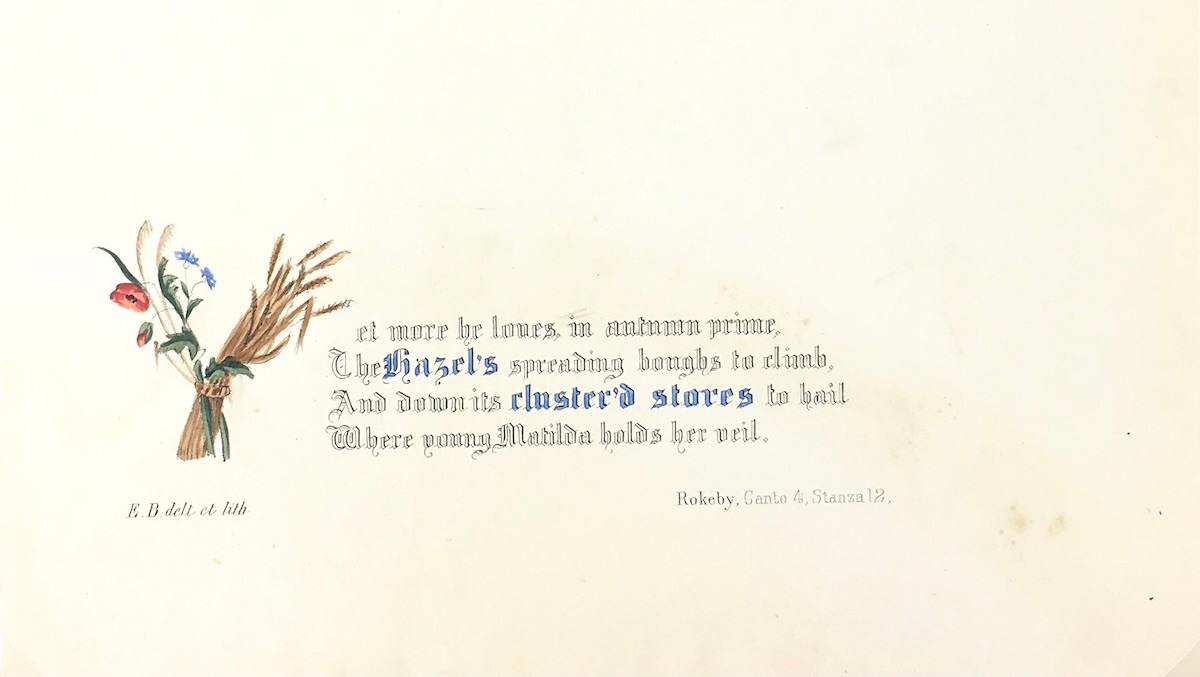 Yet more he loves, in autumn prime,
The Hazel's spreading boughs to climb,
And down its cluster'd stores to hail
Where young Matilda holds her veil.
Rokeby, Canto 4, Stanza 12,
E.B. delt et lith